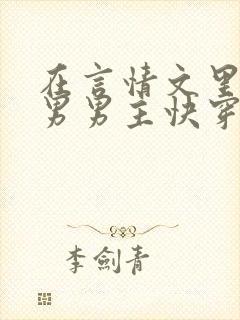 在言情文里
男男主快穿
李剑青